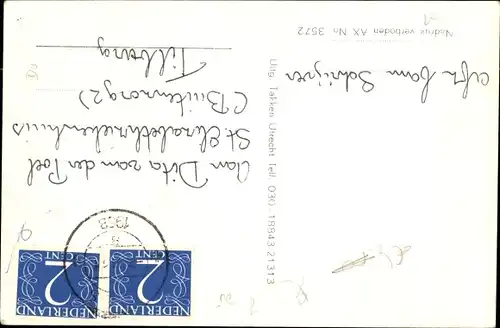 afz. fam Schrijver
Nadruk verboden AX No 3572
Uitg. Takken Utrecht Telf. 030 - 18843-21313
Aan Dita van der Poel
St Elisabethziekenhuis
(Buitenzorg 2)
Tilburg
1968
2
CENT
NEDERLAND
2
CENT
NEDERLAND